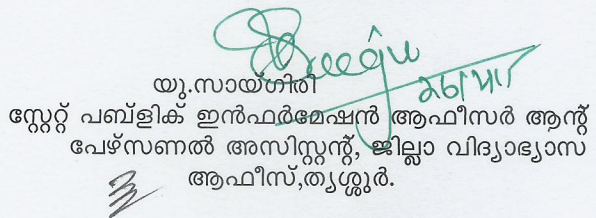 Sreeju
യു.സായ്ഗിരി
സ്റ്റേറ്റ് പബ്ളിക് ഇൻഫർമേഷൻ ആഫീസർ ആന്റ്
പേഴ്സണൽ അസിസ്റ്റന്റ്, ജില്ലാ വിദ്യാഭ്യാസ
ആഫീസ്,തൃശ്ശൂർ.